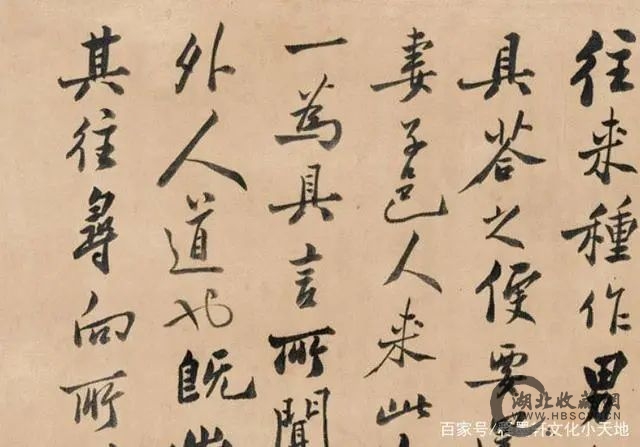 往来種作男
具荅之便要
妻子邑人来此
一為具言所聞
外人道也既出
其往尋向所
湖北收藏网
WWW.HBSC.CN
百家号/
文化小天地